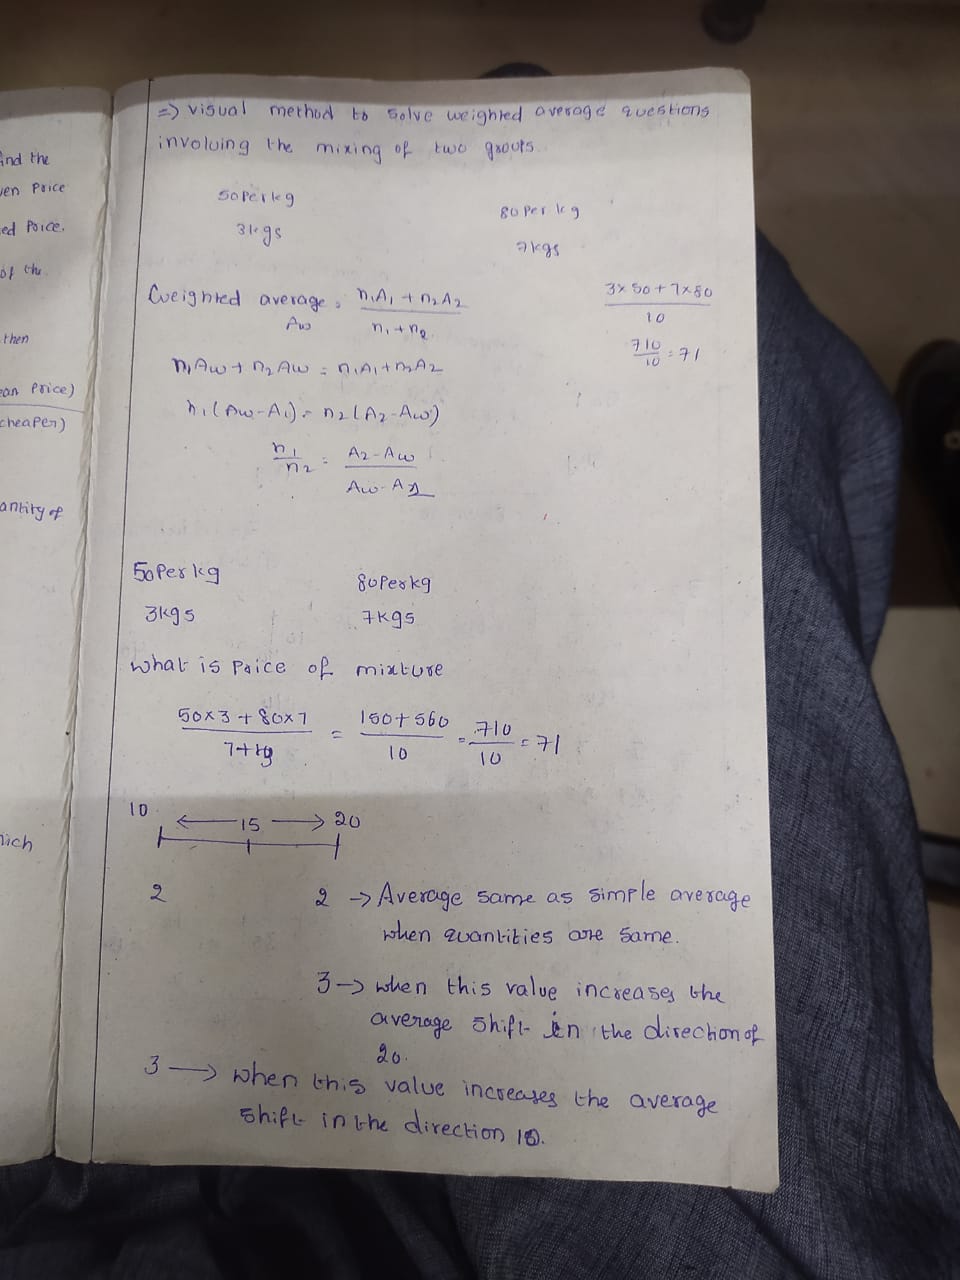 ind the
ven Price
ed Price.
of the
then
ean Price)
cheaper)
antity of
hich
=> visual method to solve weighted average questions
involving the mixing of two groups.
50 per kg
80 per kg
3kgs
7kgs
Weighted average = n₁A₁ + n₂A₂ / n₁+n₂
Aw
3×50+7×80 / 10
710/10 = 71
n₁Aw + n₂Aw = n₁A₁+n₂A₂
n₁(Aw-A₁) = n₂(A₂-Aw)
n₁/n₂ = A₂-Aw / Aw-A₁
50 Per kg 80 Per kg
3kgs 7kgs
what is Price of mixture
50×3 + 80×7 / 7+3 = 150+560 / 10 = 710/10 = 71
10 ← 15 → 20
2 2 → Average same as simple average
when quantities are same.
3 → when this value increases the
average shift in the direction of
20.
3 → when this value increases the average
shift in the direction 10.